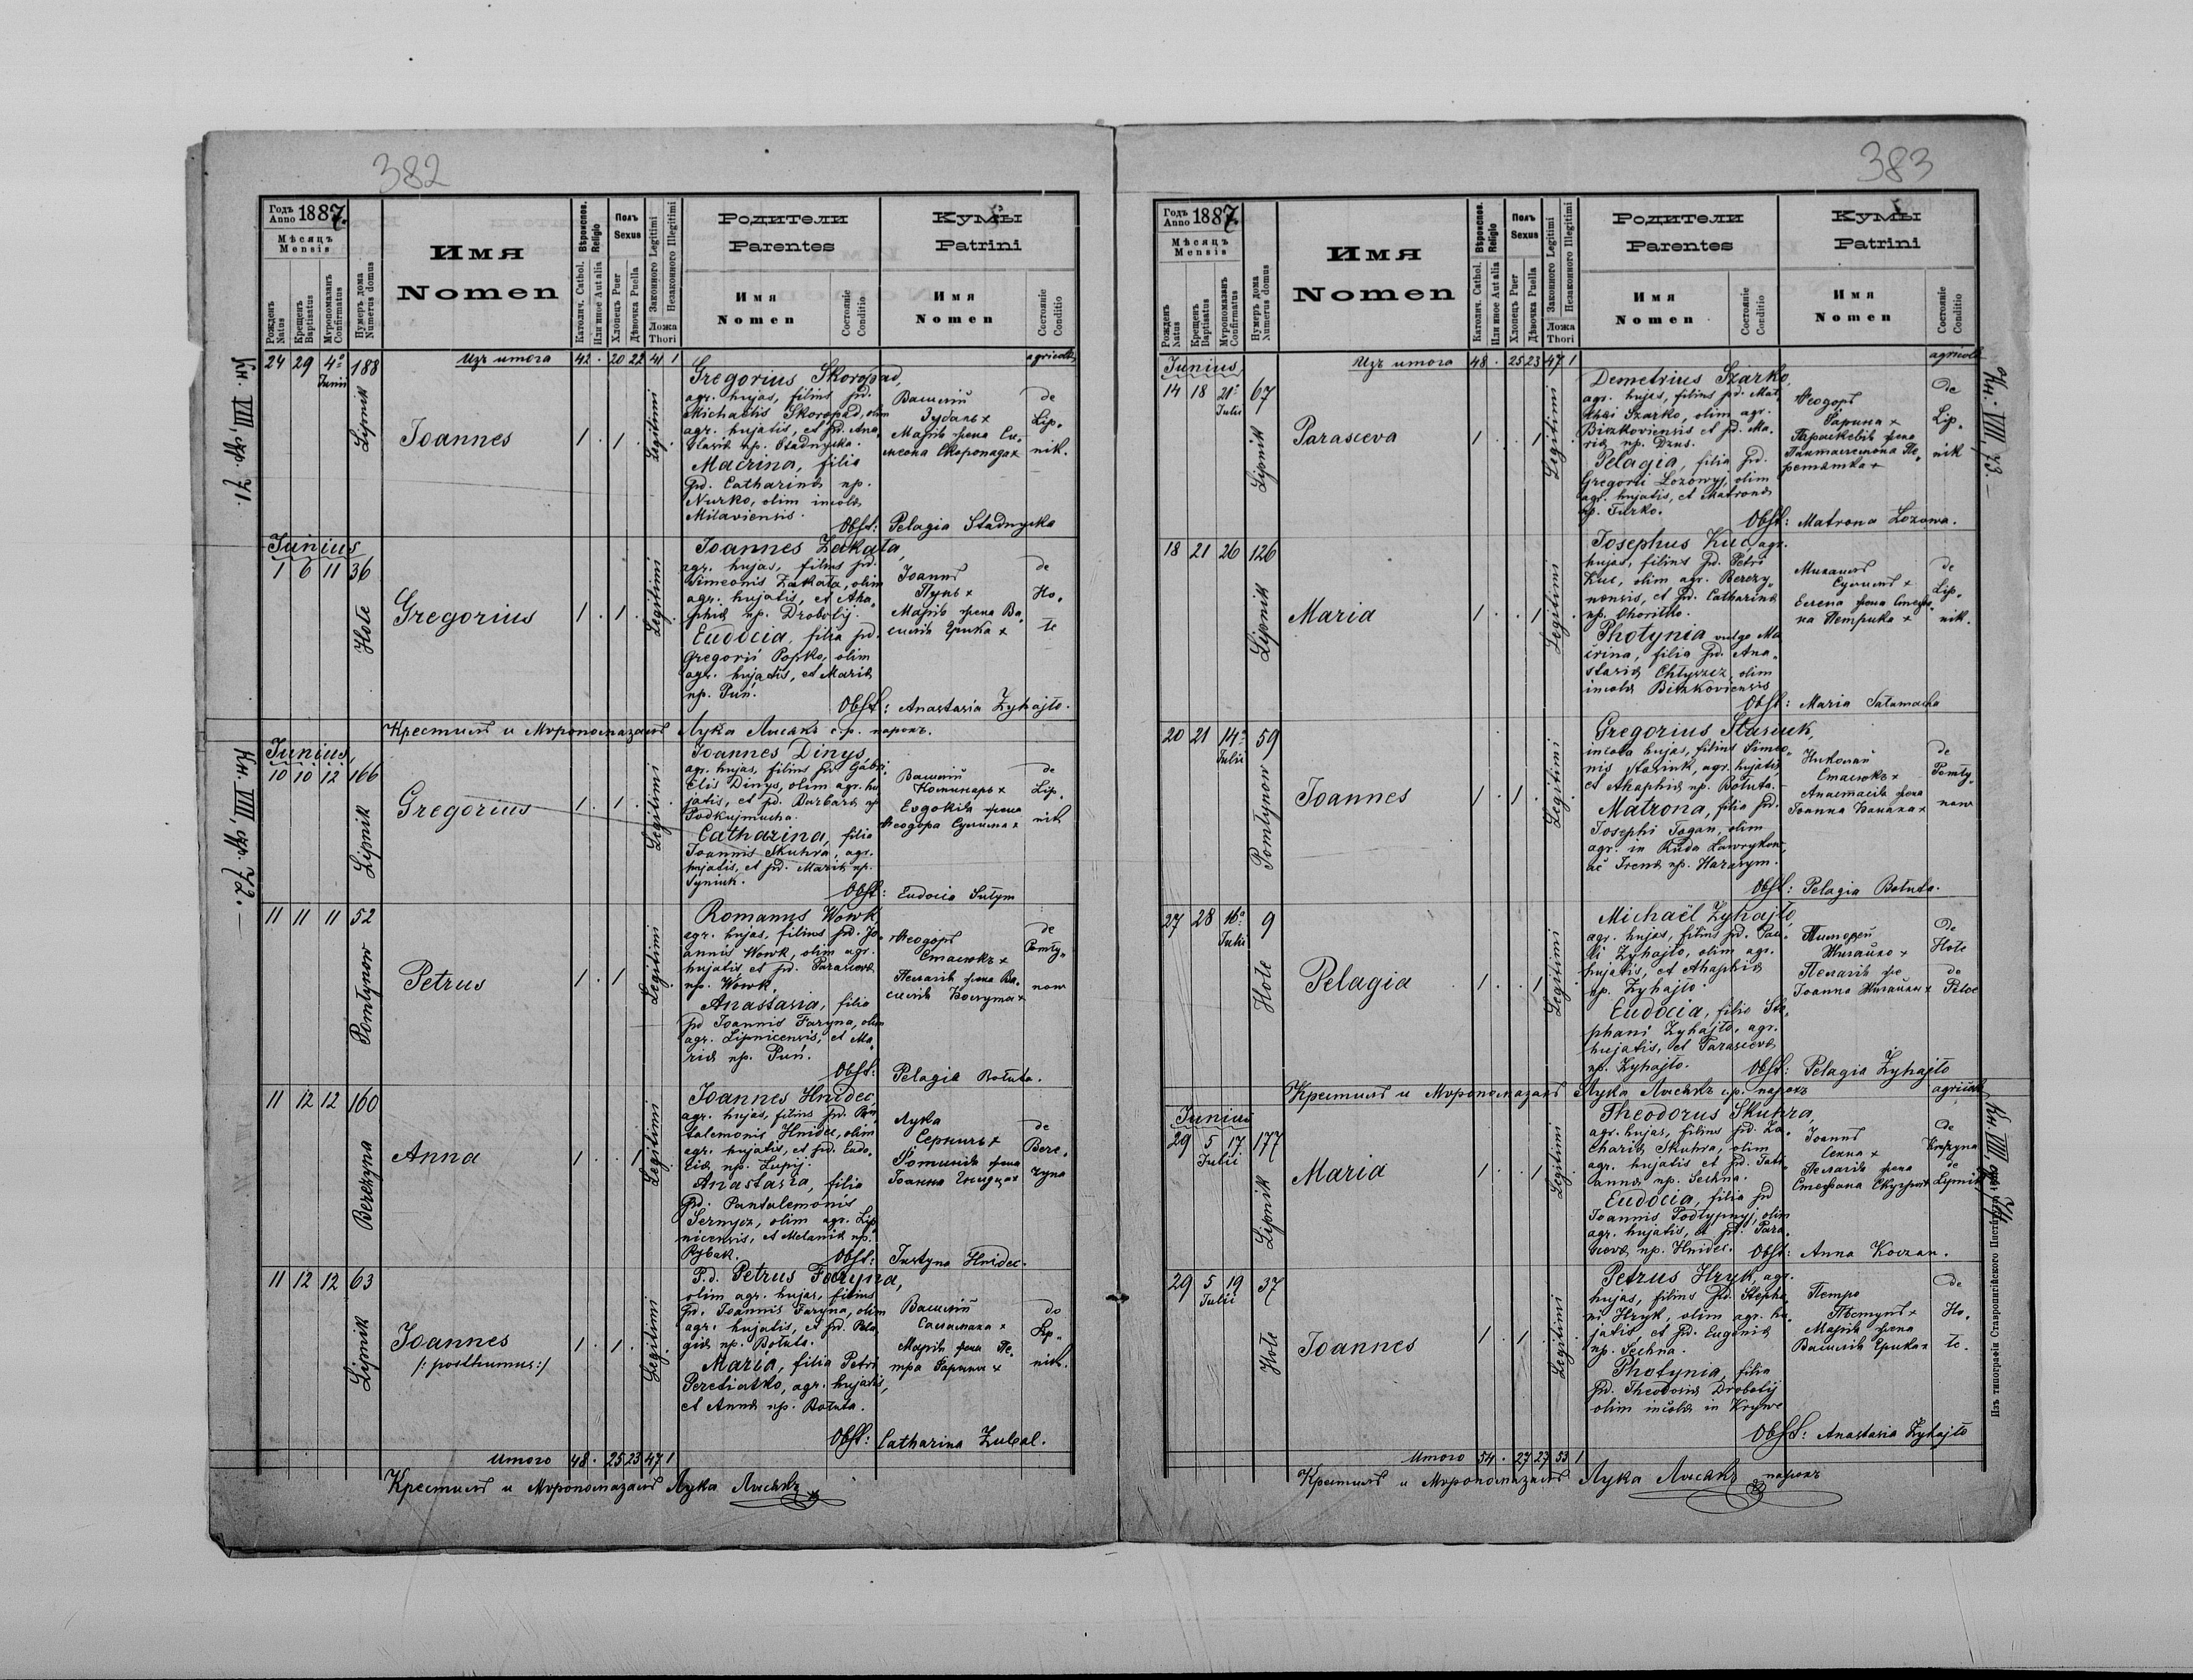 382
Годъ Anno 1887.
Мѣсяцъ Mensis
Рожденъ Natus
Крещенъ Baptisatus
Мѵропомазанъ Confirmatus
Нумеръ дома Numerus domus
Имя
Nomen
Вѣроиспов. Religio
Католич. Cathol.
Или иное Aut alia
Полъ Sexus
Хлопецъ Puer
Дѣвочка Puella
Законного Legitimi
Незаконного Illegitimi
Ложа Thori
Родители
Parentes
Имя
Nomen
Состояніе Conditio
Кумы
Patrini
Имя
Nomen
Состояніе Conditio
Кн. VIII, стр. 71.
Изъ итога 42 . 20 22 41 1
agricolae
24 29 4º Junii 188
Lipnik
Joannes
1 . 1 .
Legitimi
Gregorius Skoropad,
agr. hujas, filius pd.
Michaelis Skoropad, olim
agr. hujatis, et pd. Ana„
stasiæ np. Stadnycka.
Macrina, filia
pd. Catharinæ np.
Nurko, olim incolæ
Milaviensis.
Василій
Зубаль +
Марія жена Си„
меона Скоропада +
de
Lip„
nik.
Obst: Pelagia Stadnycka
Junius
1 6 11 36
Hole
Gregorius
1 . 1 .
Legitimi
Joannes Zakala,
agr. hujas, filius pd.
Simeonis Zakala, olim
agr. hujatis, et Aha„
phiæ np. Drobotij.
Eudocia, filia pd.
Gregorii Popko, olim
agr. hujatis, et Mariæ
np. Puń.
Іоаннъ
Пунь +
Марія жена Ва„
силія Грика +
de
Ho„
le
Obst: Anastasia Zyhajło.
Крестилъ и Мѵропомазалъ Лука Лисякъ с. р. парохъ.
Кн. VIII, стр. 72.
Junius
10 10 12 166
Lipnik
Gregorius
1 . 1 .
Legitimi
Joannes Dinys,
agr. hujas, filius pd. Gabri„
elis Dinys, olim agr. hu„
jatis, et pd. Barbaræ np.
Podkujmucha.
Catharina, filia
Joannis Skuhra, agr.
hujatis, et pd. Mariæ np.
Syniuk.
Василій
Коминарь +
Евдокія жена
Ѳеодора Сулима +
de
Lip„
nik
Obst: Eudocia Sulym
11 11 11 52
Pomłynow
Petrus
1 . 1 .
Legitimi
Romanus Wowk,
agr. hujas, filius pd. Jo„
annis Wowk, olim agr.
hujatis, et pd. Parascevæ
np. Wowk.
Anastasia, filia
pd Joannis Faryna, olim
agr. Lipnicensis, et Ma„
riæ np. Puń.
Ѳеодоръ
Стасюкъ +
Пелагія жена Ва„
силія Болута +
de
Pomły„
now
Obst: Pelagia Bołuta.
11 12 12 160
Berezyna
Anna
1 . . 1
Legitimi
Joannes Hnidec,
agr. hujas, filius pd. Pan„
talemonis Hnidec, olim
agr. hujatis, et pd. Eudo„
ciæ np. Lupij.
Anastasia, filia
pd. Pantalemonis
Sernycz, olim agr. Lip„
nicensis, et Melaniæ np.
Rybak.
Лука
Серничъ +
Іоанна Гнидця +
de
Bere„
zyna
Obst: Justyna Hnidec.
11 12 12 63
Lipnik
Joannes
/: posthumus :/
1 . 1 .
Legitimi
P.d. Petrus Faryna,
olim agr. hujas, filius
pd. Joannis Faryna, olim
agr. hujatis, et pd. Pela„
giæ np. Bołuta.
Maria, filia Petri
Peretiatko, agr. hujatis,
et Annæ np. Bołuta.
Василій
Саламаха +
Марія жена Пе„
тра Фарины +
de
Lip„
nik.
Obst: Catharina Zubal.
Итого 48 . 25 23 47 1
Крестилъ и Мѵропомазалъ Лука Лисякъ
383
Годъ Anno 1887.
Мѣсяцъ Mensis
Рожденъ Natus
Крещенъ Baptisatus
Мѵропомазанъ Confirmatus
Нумеръ дома Numerus domus
Имя
Nomen
Вѣроиспов. Religio
Католич. Cathol.
Или иное Aut alia
Полъ Sexus
Хлопецъ Puer
Дѣвочка Puella
Законного Legitimi
Незаконного Illegitimi
Ложа Thori
Родители
Parentes
Имя
Nomen
Состояніе Conditio
Кумы
Patrini
Имя
Nomen
Состояніе Conditio
Кн. VIII, 73.
Изъ итога 48 . 25 23 47 1
agricolae
Junius
14 18 21º Julii 67
Lipnik
Parasceva
1 . . 1
Legitimi
Demetrius Szarko,
agr. hujas, filius pd. Mat„
thæi Szarko, olim agr.
Biczkoviensis et pd. Ma„
riæ np. Dzus.
Pelagia, filia pd.
Gregorii Lozowyj, olim
agr. hujatis, et Matronæ
np. Turko.
Ѳеодоръ
Фарина +
Параскевія жена
Пантелеимона Пе„
ретятка +
de
Lip„
nik
Obst: Matrona Lozowa.
18 21 26 126
Lipnik
Maria
1 . . 1
Legitimi
Josephus Kuc, agr.
hujas, filius pd. Petri
Kuc, olim agr. Berezy„
nensis, et pd. Catharinæ
np. Choritko.
Photynia vulgo Ma„
crina, filia pd. Ana„
stasiæ Chłyszcz, olim
incolæ Biczkoviensis
Михаилъ
Сулимъ +
Елена жена Стефа„
на Петрика +
de
Lip„
nik.
Obst: Maria Salamacha
20 21 14º Julii 59
Pomłynow
Joannes
1 . 1 .
Legitimi
Gregorius Stasiuk,
incola hujas, filius Simeo„
nis Stasiuk, agr. hujatis,
et Ahaphiæ np. Bołuta.
Matrona, filia pd.
Josephi Fagan, olim
agr. in Ruda Lawrykow,
ac Irenæ np. Harasym.
Николай
Стасюкъ +
Анастасія жена
Іоанна Банаха +
de
Pomły„
now
Obst: Pelagia Bołuta.
27 28 16º Julii 9
Hole
Pelagia
1 . . 1
Legitimi
Michaël Zyhajło,
agr. hujas, filius pd. Pau„
li Zyhajło, olim agr.
hujatis, et Ahaphiæ
np. Zyhajło.
Eudocia, filia Ste„
phani Zyhajło, agr.
hujatis, et Parascevæ
np. Zyhajło.
Тимофей
Жигайло +
Пелагія же
Іоанна Жигайлы +
de
Hole
de
Obst: Pelagia Zyhajło
Крестилъ и Мѵропомазалъ Лука Лисякъ с. р. парохъ
agricolae
Junius
29 5 17 Julii 177
Lipnik
Maria
1 . . 1
Legitimi
Theodorus Skuhra,
agr. hujas, filius pd. Za„
chariæ Skuhra, olim
agr. hujatis et pd. Tati„
annæ np. Sechna.
Eudocia, filia pd
Joannis Podłypnyj, olim
agr. hujatis, et pd. Para„
scevæ np. Hnidec.
Іоаннъ
Сехна +
Пелагія жена
Стефана Скугры +
de
de
Lipnik
Obst: Anna Koczan.
29 5 19 Julii 37
Hole
Joannes
1 . 1 .
Legitimi
Petrus Hryk, agr.
hujas, filius pd. Stepha„
ni Hryk, olim agr. hu„
jatis, et pd. Eugeniæ
np. Sechna.
Photynia, filia
pd. Theodosiæ Drobotij
olim incolæ in Krywe
Петро
Марія жена
Василія Грика +
de
Ho„
le.
Obst: Anastasia Zyhajło
Итого 54 . 27 27 53 1
Крестилъ и Мѵропомазалъ Лука Лисякъ парохъ
Изъ типографіи Ставропигійского Института